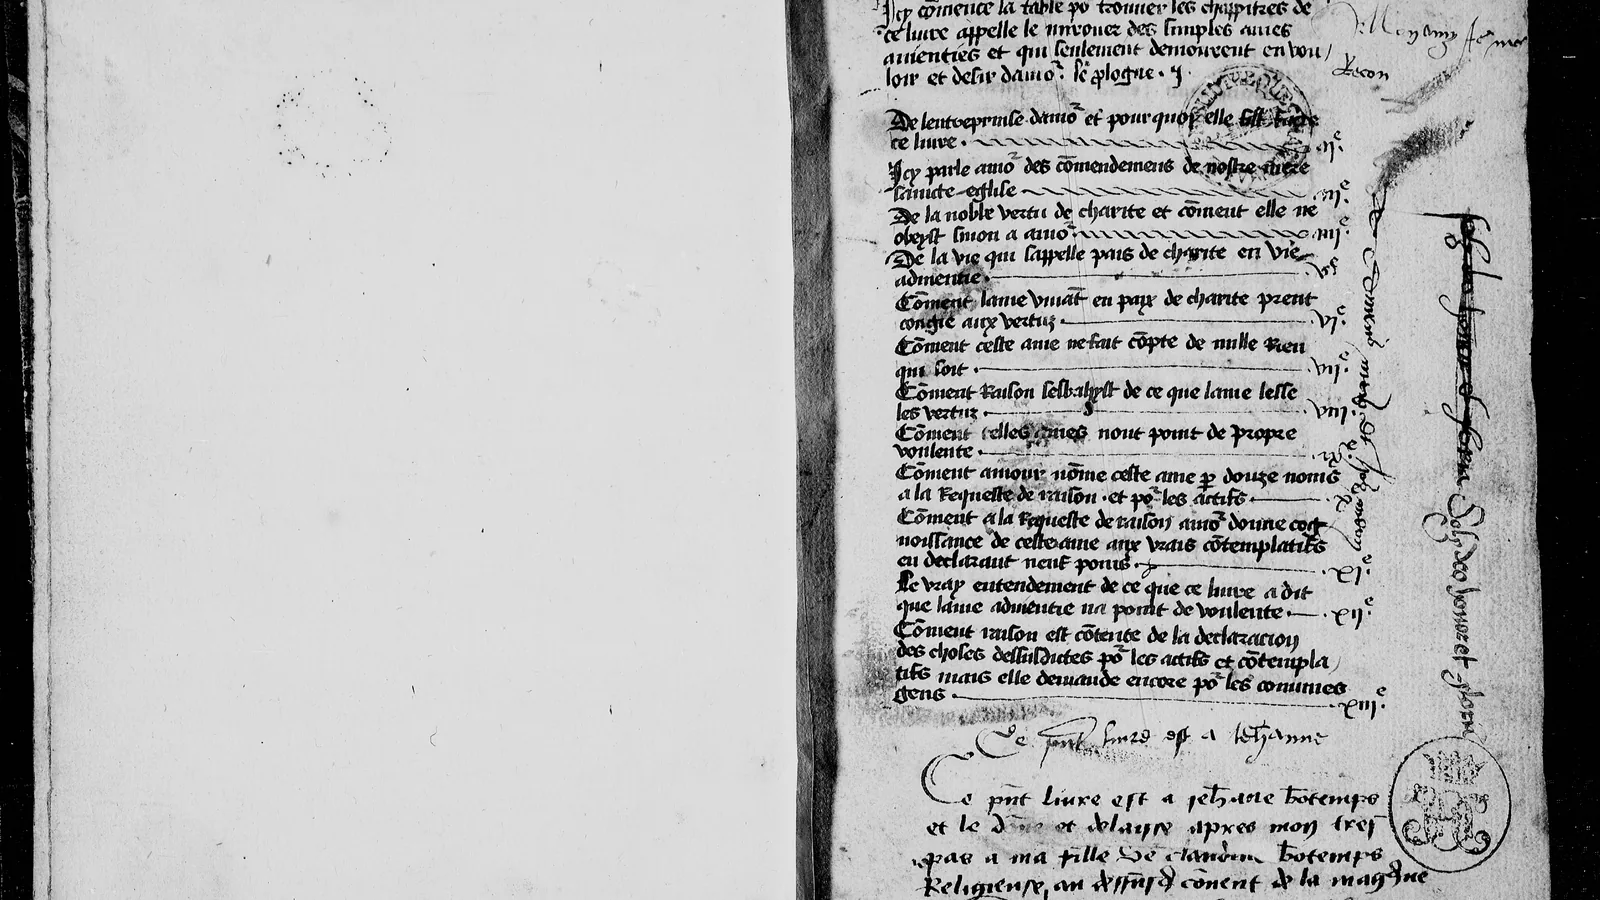 Icy cōmence la table po᷑ trouuer les chappitres de
ce liure appelle le mirouer des simples ames
anienties et qui seulement demourent en vou
loir et desir damo᷑. le ꝓlogue. j.
De lentreprinse damo᷑ et pourquoy elle fist faire
ce liure. ii.ᵉ
Icy parle amo᷑ des cōmendemens de nostre mere
saincte eglise iii.ᵉ
De la noble vertu de charite et cōment elle ne
obeyst sinon a amo᷑. iiii.ᵉ
De la vie qui sappelle pais de charite en vie
adnientie. v.ᵉ
Cōment lame viuāt en paix de charite prent
congie aux vertuz. vi.ᵉ
Cōment ceste ame ne fait cōpte de nulle rien
qui soit. vii.ᵉ
Cōment Raison sesbahyst de ce que lame lesse
les vertuz. viii.ᵉ
Cōment telles ames nont point de propre
voulente. ix.ᵉ
Cōment amour nōme ceste ame ꝑ douze noms
a la Requeste de raison. et po᷑ les actifs. x.ᵉ
Cōment a la Requeste de raison amo᷑ donne cog
noissance de ceste ame aux vrais cōtemplatifs
en declarant neuf poins. xi.ᵉ
Le vray entendement de ce que ce liure a dit
que lame adnientie na point de voulente. xii.ᵉ
Cōment raison est cōtente de la declaracion
des choses dessusdictes po᷑ les actifs et cōtempla
tifs mais elle demande encore po᷑ les communes
gens. xiii.ᵉ
Ce pñt liure est a Jehanne
Ce pñt liure est a Jehāne bōtemps
et le et delaisse apres mon tres
pas a ma fille bōtemps
Religieuse au cōuent de la magdeleine
Mon amy
Seulz des honor et gloria